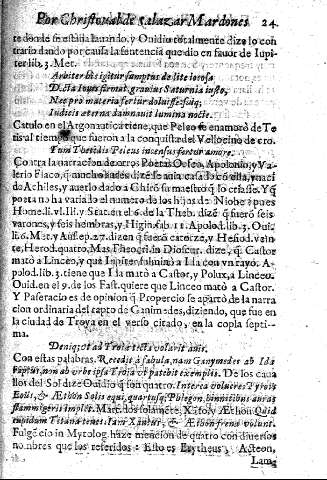 Por Christoual de Salazar Mardones 24
te donde se estaua lauando, y Ouidio totalmente dize lo con
trario dando por causa la sentencia que dio en fauor de Iupi-
ter lib. 3. Met.
Arbiter hic igitur sumptus de lite iocosa
Dicta Iouis firmat, grauius Saturnia iusto,
Nec pro materia fertur doluisse: suiq;
Iudicis æterna damnauit lumina nocte.
Catulo en el Argonautico tiene, que Peleo se enamarò de Te
tis al tiempo que fueron a la conquista del Vellocino de oro
Tum Thetidis Peleus incensus fertur amore.
Contra la narracion de otros Poetas Orfeo, Apolonio, y Va-
lerio Flaco, q̃ muchos años dize se auia casado cõ ella, y naci
do Achiles, y auerlo dado a Chirõ su maestro q̃ lo criasse. Y q̃
poeta no ha variado el numero de los hijos de Niobe pues
Home. li. vl. Ili. y Stat. en el. 6. de la Theb. dize q̃ fuerõ seis
varones, y seis hembras, y Higin. fab. 11. Apolod. lib. 3. Ouid.
li. 6. Met. y Auso. ep. 27. dizen q̃ fuerõ catorze, y Hesiod. vein-
te, Herod. quatro, Mas Theocri. in Dioscur. dize, q̃ Castor
matò a Linceo, y què Iupiter fulminò a Ida con vn rayo. A-
polod. lib. 3. tiene que Ida matò a Castor, y Polux a Linceo.
Ouid. en el 9. de los Fast. quiere que Linceo matò a Castor.
Y Paseracio es de opinion q̃ Propercio se apartò de la narra
cion ordinaria del rapto de Ganimedes, diziendo, que fue en
la ciudad de Troya en el verso citado, en la copla septi-
ma.
Deniq; vt ad Troiæ tecta volarit auis.
Con estas palabras. Recedit à fabula, nam Ganymedes ab Ida
raptus, non ab vrbe ipsa Troia vt patebit exemplis. De los caua
llos del Sol dize Ouidio q̃ son quatro. Interea volucres Pyrois
Eous, & Æthon Solis equi, quartusq; Phlegon, hinnitibus auras
flammigeris implet. Mart. dos solamẽte, Xãto, y Æthon. Quid
cupidum Titana tenes? iam Xantus, & Æthon frena volunt.
Fulgẽcio in Mytolog. haze mencion de quatro con diuersos
nombres que los referidos: Esto es Erytheus, Acteon,
Lam-